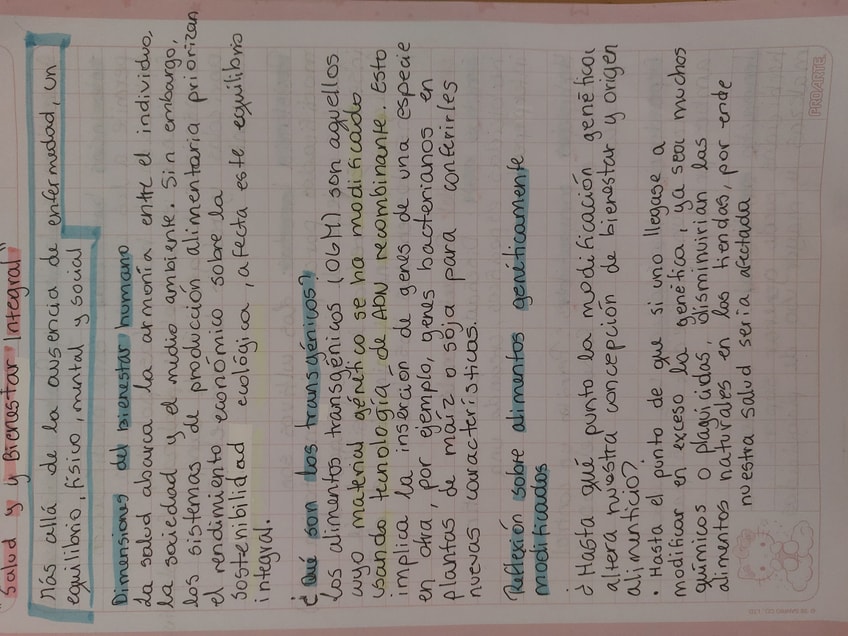 "Salud y y Bienestar Integral"
Más allá de la ausencia de enfermedad, un
equilibrio, físico, mental y social
Dimensiones del bienestar humano
La salud abarca la armonía entre el individuo,
la sociedad y el medio ambiente. Sin embargo,
los sistemas de producción alimentaria priorizan
el rendimiento económico sobre la
sostenibilidad ecológica, afecta este equilibrio
integral.
¿Qué son los transgénicos?
Los alimentos transgénicos (OGM) son aquellos
cuyo material génético se ha modificado
usando tecnología de ADN recombinante. Esto
implica la inserción de genes de una especie
en otra, por ejemplo, genes bacterianos en
plantas de maíz o soja para conferirles
nuevas características.
Reflexión sobre alimentos genéticamente
modificados
¿Hasta qué punto la modificación genética
altera nuestra concepción de bienestar y origen
alimenticio?
• Hasta el punto de que si uno llegase a
modificar en exceso la genética, ya sea muchos
químicos o plaguicidas, disminuirían las
alimentos naturales en las tiendas, por ende
nuestra salud sería afectada
PROARTE